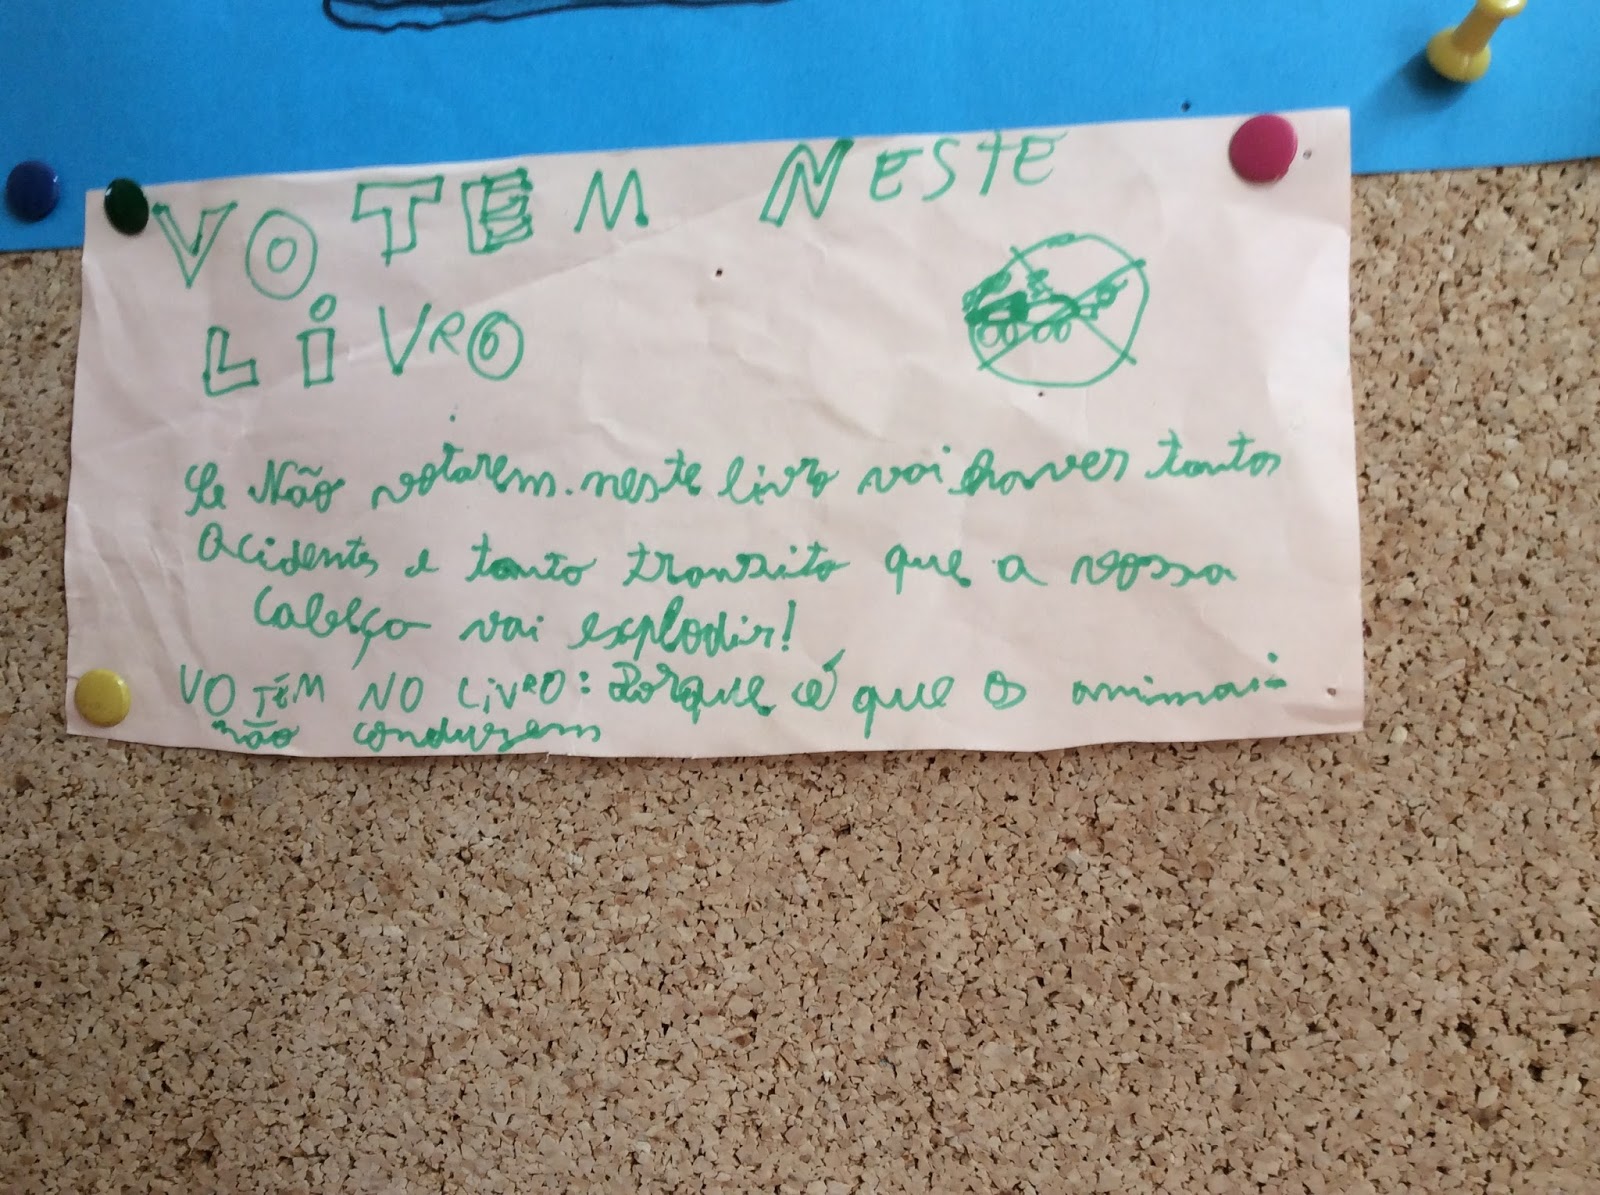 VOTEM NESTE
LIVRO
Se Não votarem neste livro vai haver tantos
Acidentes e tanto transito que a vossa
Cabeça vai explodir!
VOTÉM NO LIVRO: Porque é que os animais
não conduzem